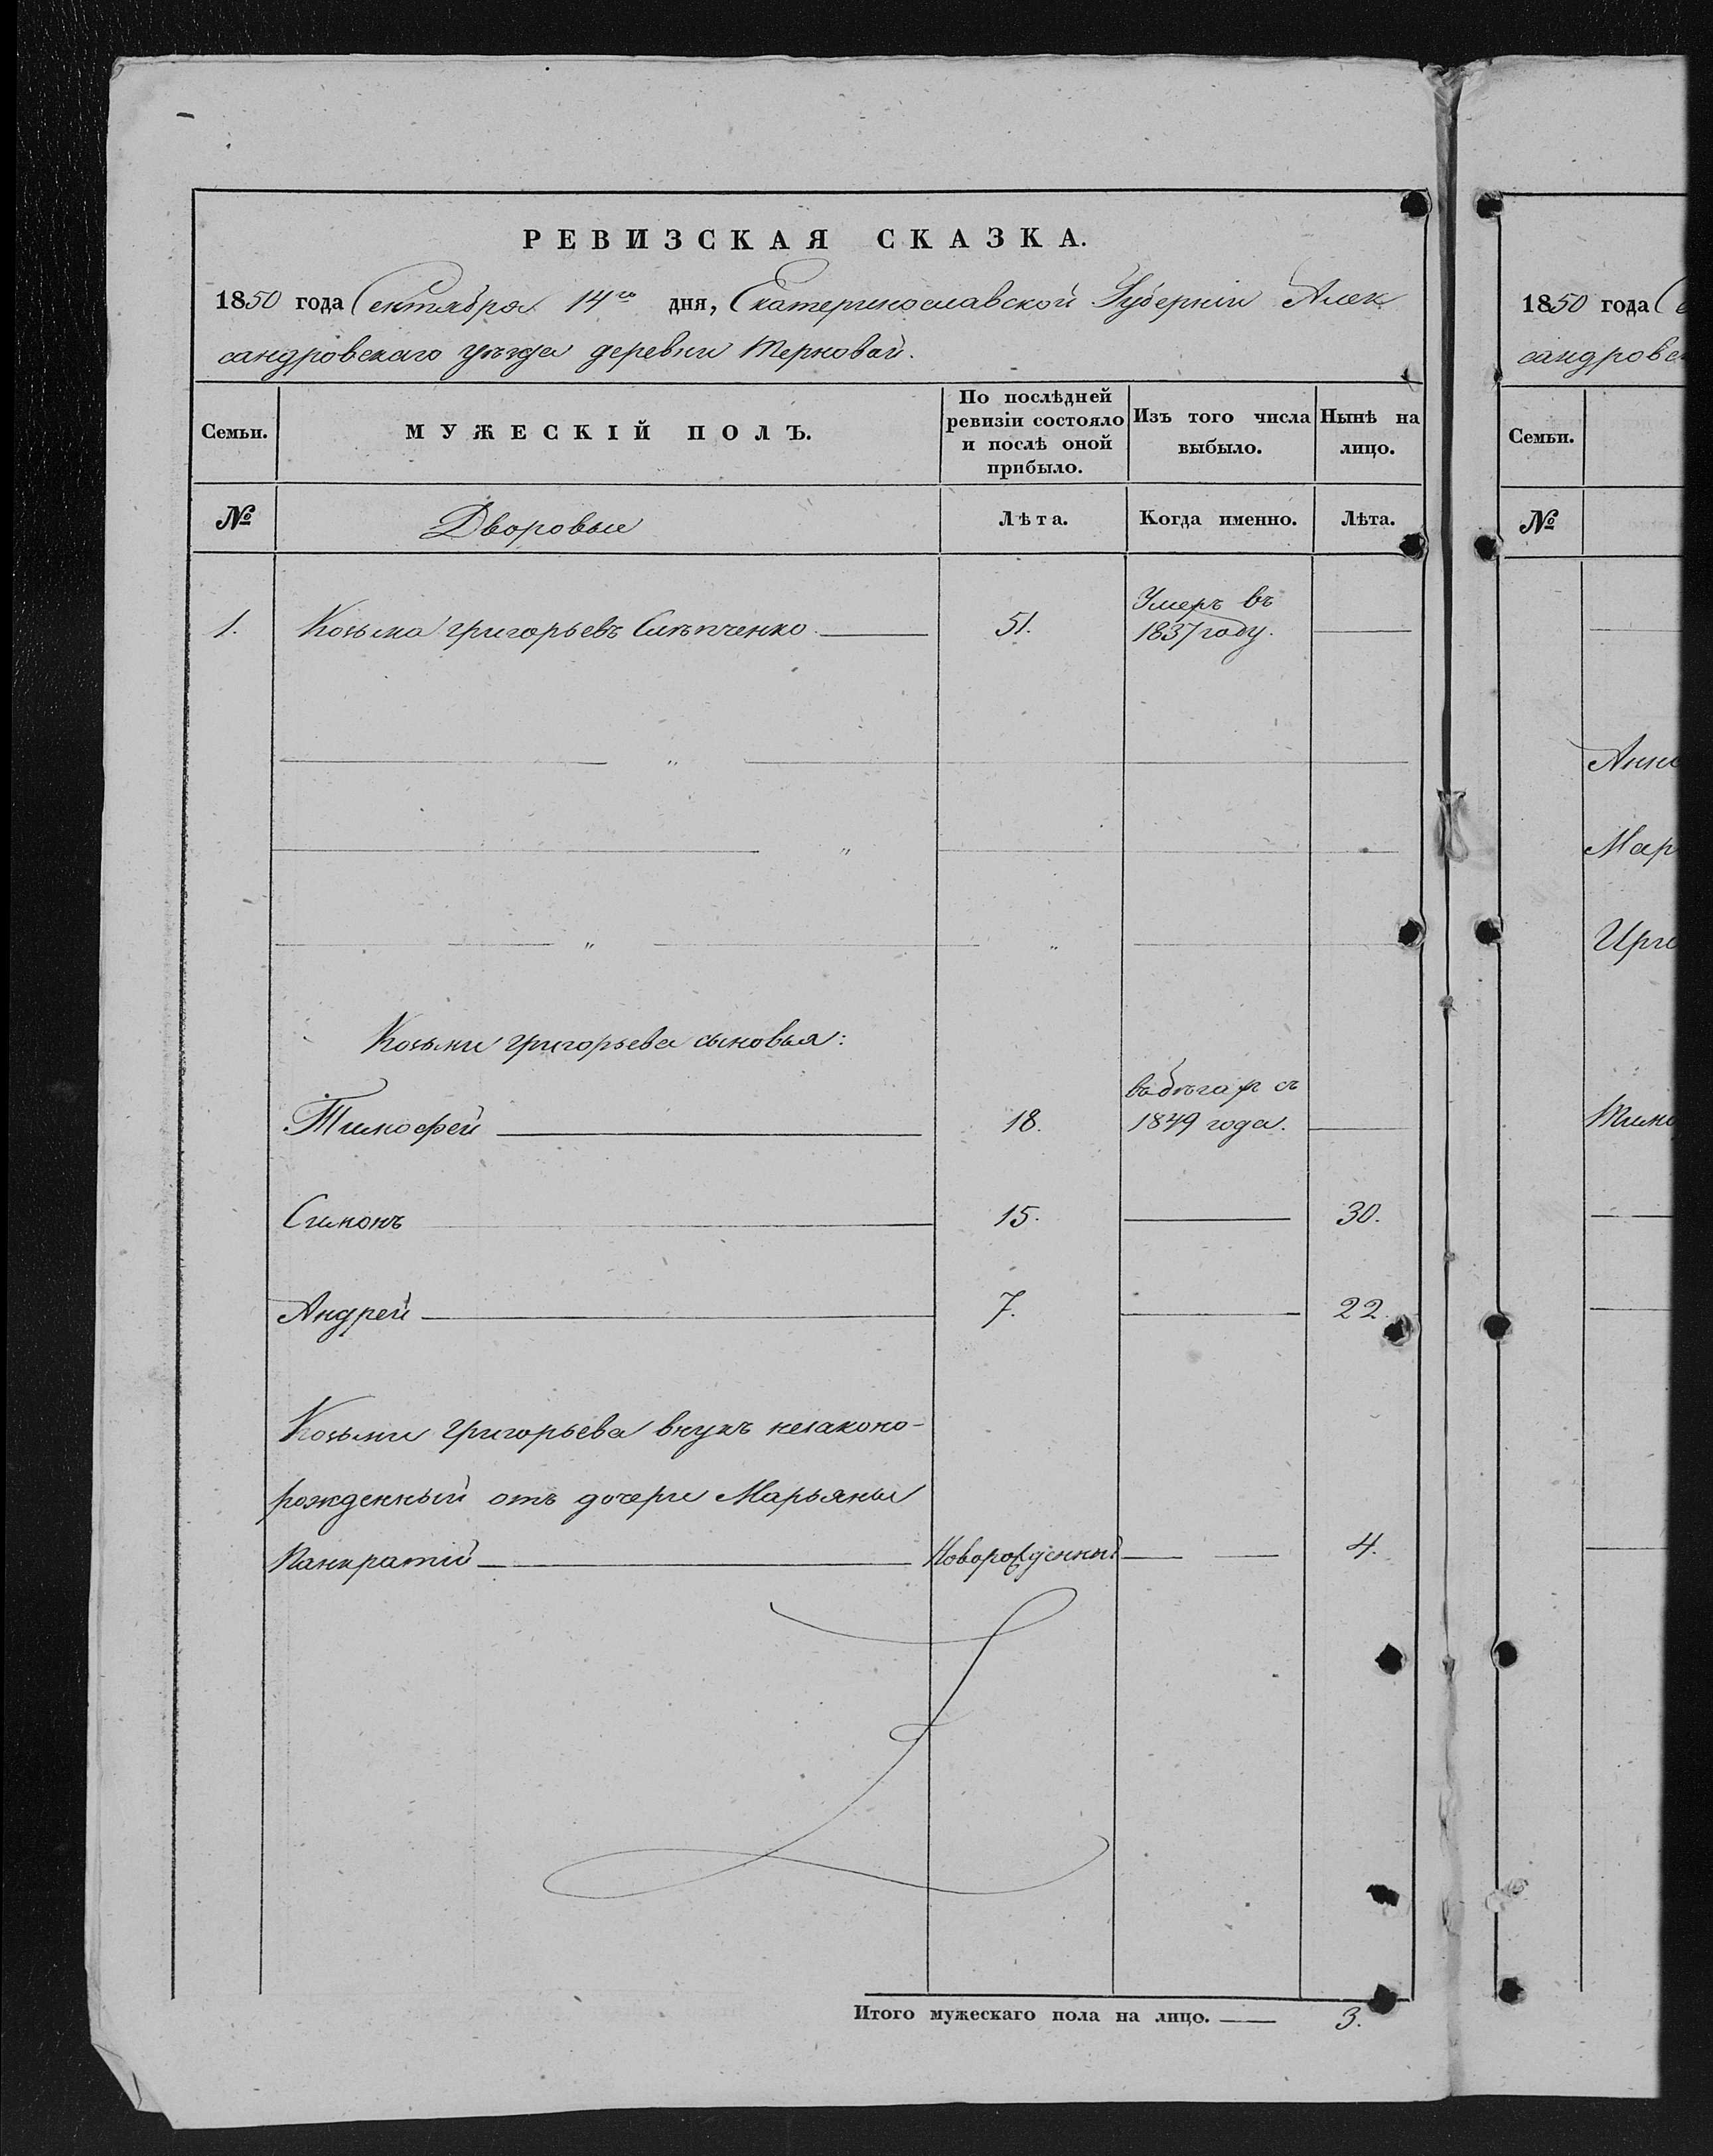 РЕВИЗСКАЯ СКАЗКА.
1850 года Сентября 14го дня, Екатеринославской Губерніи Алек
сандровскаго уѣзда деревни Терновай.
Семьи.
МУЖЕСКІЙ ПОЛЪ.
По послѣдней
ревизіи состояло
и послѣ оной
прибыло.
Изъ того числа
выбыло.
Нынѣ на
лицо.
№
Дворовые
Лѣта.
Когда именно.
Лѣта.
1. Козьма Григорьевъ Слѣпченко 51. Умеръ въ
1837 году.
Козьмы Григорьева сыновья:
Тимофей 18. въ бѣгах съ
1849 года.
Симонъ 15. 30.
Андрей 7. 22.
Козьмы Григорьева внукъ незаконо-
рожденный отъ дочери Марьяны
Панкратій Новорожденный 4.
Итого мужескаго пола на лицо. 3.
1850 года С
сандровс
Семьи.
№
Анн
Мар
Ири
Тимо